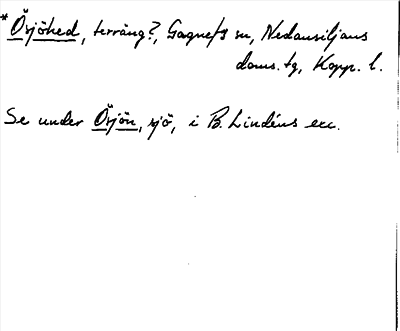 * Örsjöhed, terräng?, Gagnefs sn, Nedansiljans
doms. tg, Kopp. l.
Se under Örsjön, sjö, i B. Lindéns exc.